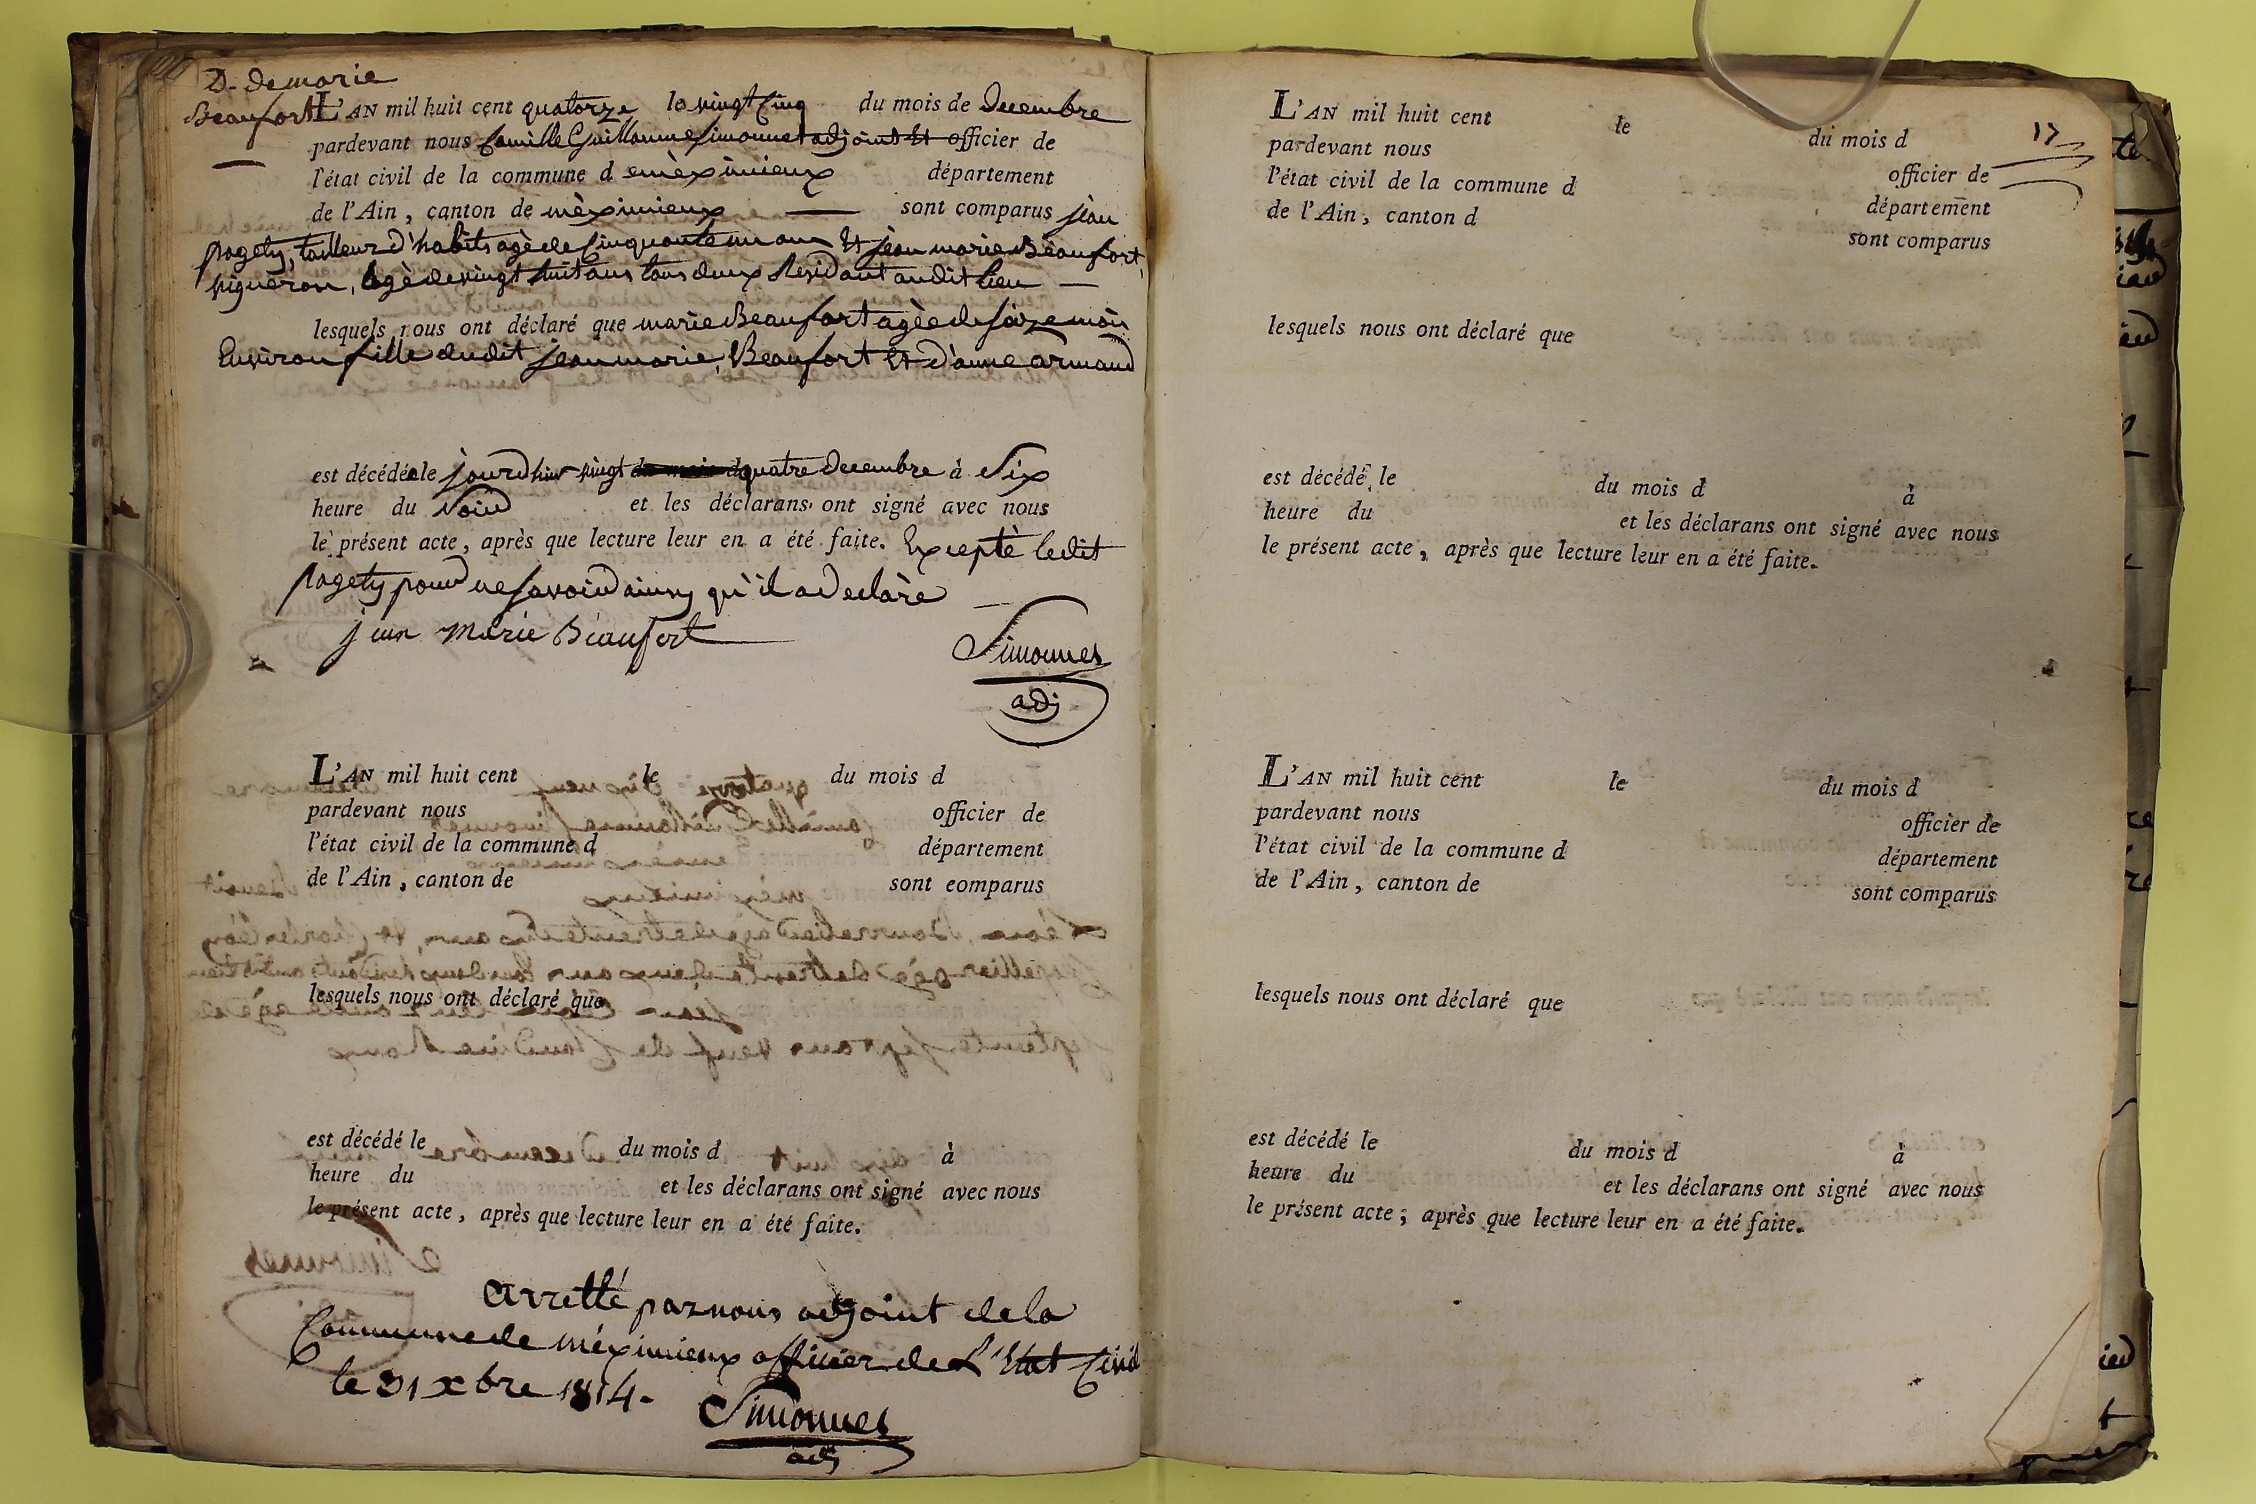 D. de marie
Beaufort
L'AN mil huit cent quatorze le vingt cinq du mois de Decembre
pardevant nous Camille Guillaume Simonnet adjoint et officier de
l'état civil de la commune d emèximieux département
de l'Ain, canton de mèximieux sont comparus jean
pagety, tailleur d'habits agè de Cinquante un ans Et jean marie Beaufort,
vigneron, agè de vingt huit ans tous deux Residant audit lieu
lesquels nous ont déclaré que marie Beaufort agèe de seize mois
Environ fille dudit jean marie Beaufort Et d'anne armand
est décédée le jourdhier vingt quatre decembre à Six
heure du Soir et les déclarans ont signé avec nous
le présent acte, après que lecture leur en a été faite. Exceptè ledit
pagety pour ne savoir ainsy qu'il a declarè
jean marie Beaufort
Simonnet
adj
L'AN mil huit cent le du mois d
pardevant nous officier de
l'état civil de la commune d département
de l'Ain, canton de sont eomparus
lesquels nous ont déclaré que
est décédé le du mois d à
heure du et les déclarans ont signé avec nous
le présent acte, après que lecture leur en a été faite.
arretté par nous adjoint de la
Commune de méximieux officier de L'Etat Civil
le 31 xbre 1814.
Simonnet
adj
17
L'AN mil huit cent le du mois d
pardevant nous officier de
l'état civil de la commune d département
de l'Ain, canton d sont comparus
lesquels nous ont déclaré que
est décédé le du mois d à
heure du et les déclarans ont signé avec nous
le présent acte, après que lecture leur en a été faite.
L'AN mil huit cent le du mois d
pardevant nous officier de
l'état civil de la commune d département
de l'Ain, canton de sont comparus
lesquels nous ont déclaré que
est décédé le du mois d à
heure du et les déclarans ont signé avec nous
le présent acte; après que lecture leur en a été faite.